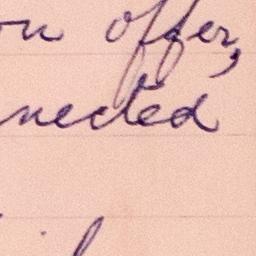 on offer,
nected